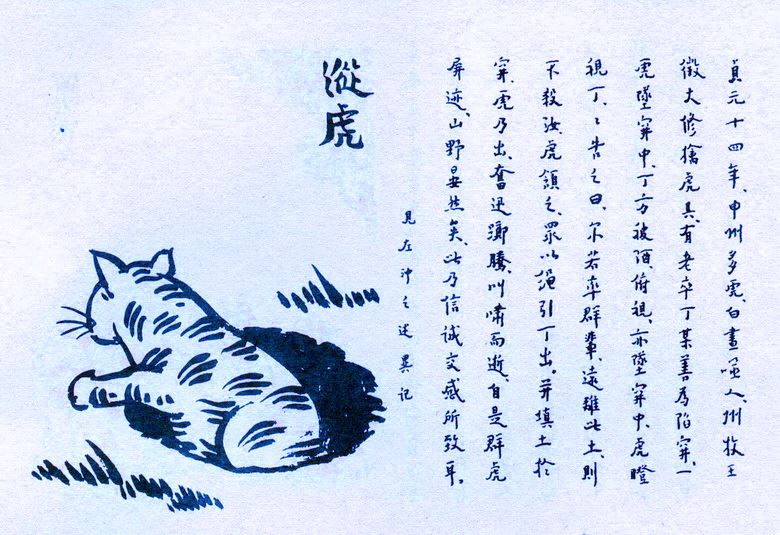 貞元十四年、申州多虎、白晝噬人、州牧王
徵大修擒虎具、有老卒丁某善為陷穽、一
虎墜穽中、丁方被酒、俯視、亦墜穽中、虎瞪
視丁、々告之曰、尔若率群輩、遠離此土、則
不殺汝、虎頷之、眾以繩引丁出。并填土於
穽、虎乃出、奮迅躑騰、叫嘯而逝、自是群虎
屏迹、山野晏然矣、此乃信誠交感所致耳。
見左沖之述異記
縱虎